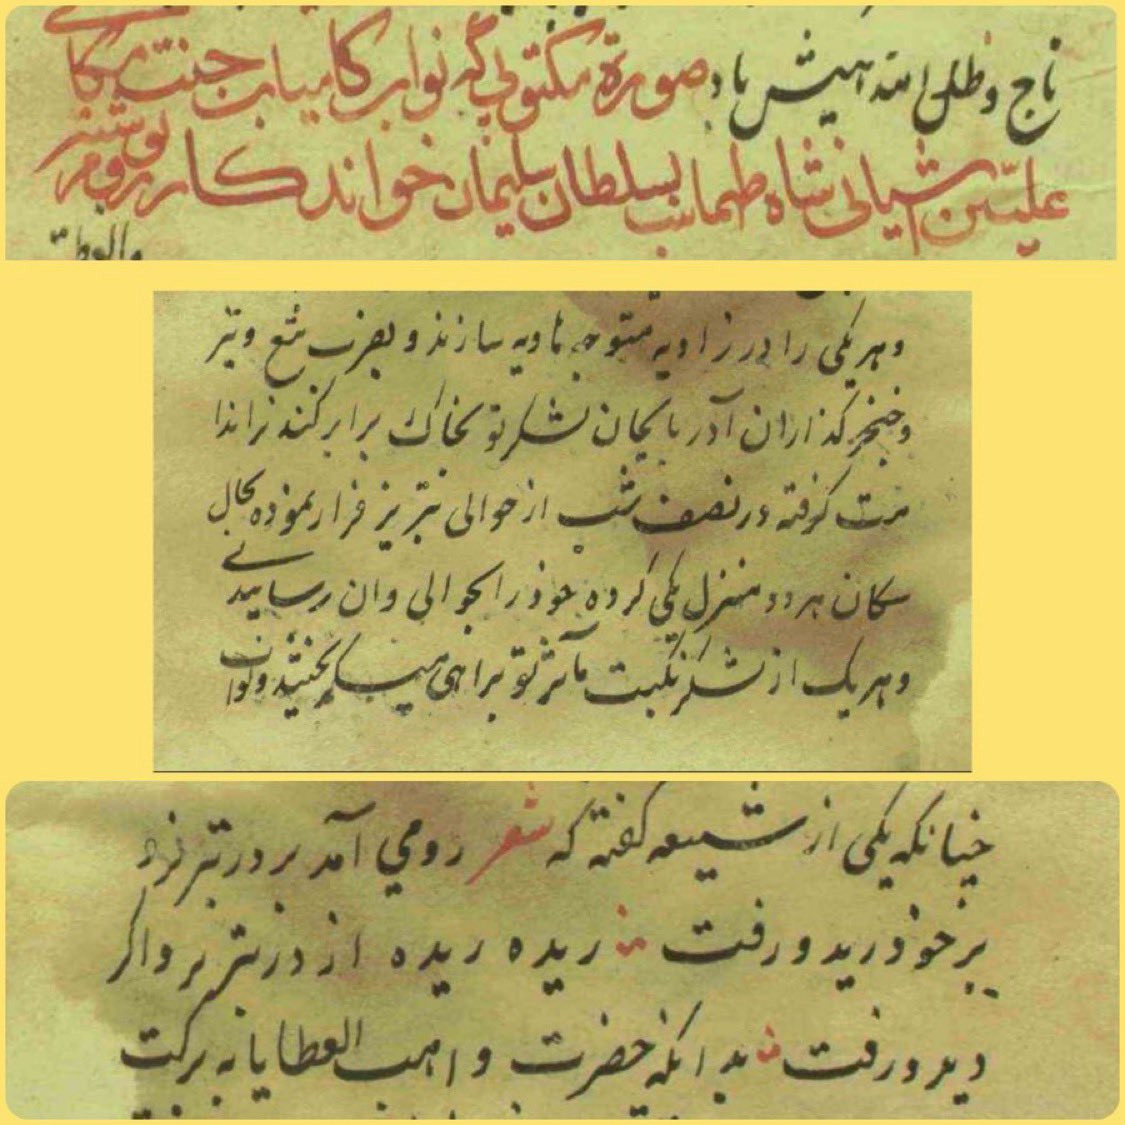 تاج و ظل الله همیش باد صورة مکتوبی که نواب کامیاب جنت مکا
علیین آشیانی شاه طهماسب بسلطان سلیمان خواندکار روم نوشته
وهر یکی را در زاویه متوجه هاویه سازند و بضرب تیغ و تیر
وخنجر کذاران آذربایجان لشکر تو بخاک برابر کنند
کرفته در نصف شب از حوالی تبریز فرار نموده بحال
سکان هر دو منزل یکی کرده خود را بحوالی وان رسانیدی
وهر یک از لشکر نکبت مآثر تو براهی
چنانکه یکی از شیعه کفته که شعر رومی آمد بر در تبریز
بر خود رید و رفت ریده ریده از در تبریز واکر
دید و رفت بدانکه حضرت واهب العطایا به برکت